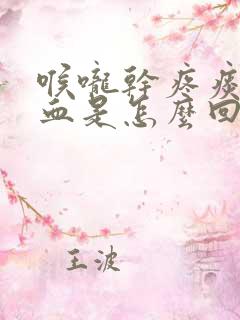 喉嚨幹疼痰
血是怎麼回
王波